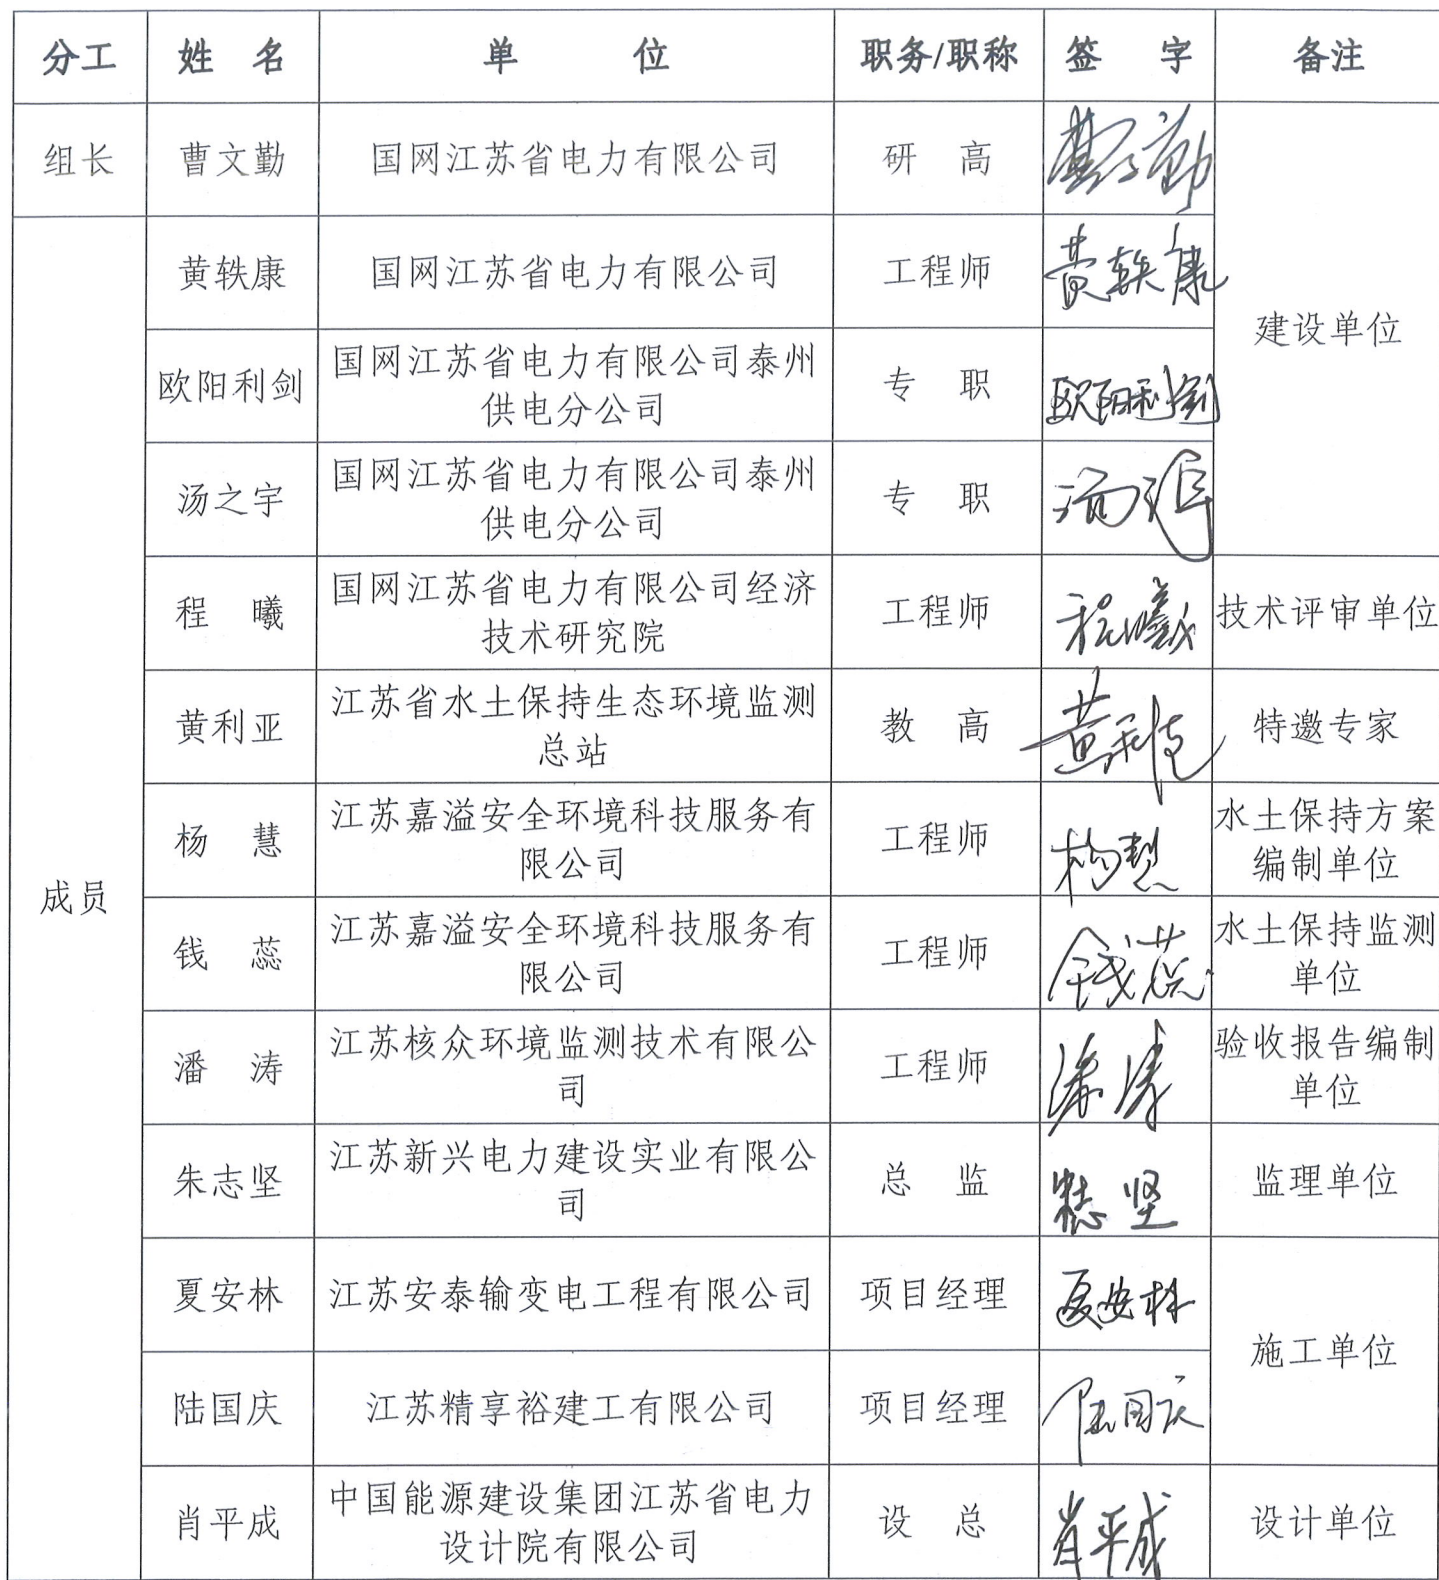 分工 姓 名 单 位 职务/职称 签 字 备注
组长 曹文勤 国网江苏省电力有限公司 研 高 曹文勤
黄轶康 国网江苏省电力有限公司 工程师 黄轶康
建设单位
欧阳利剑 国网江苏省电力有限公司泰州
供电分公司 专 职 欧阳利剑
汤之宇 国网江苏省电力有限公司泰州
供电分公司 专 职 汤之宇
程 曦 国网江苏省电力有限公司经济
技术研究院 工程师 程曦 技术评审单位
黄利亚 江苏省水土保持生态环境监测
总站 教 高 黄利亚 特邀专家
成员
杨 慧 江苏嘉溢安全环境科技服务有
限公司 工程师 杨慧 水土保持方案
编制单位
钱 蕊 江苏嘉溢安全环境科技服务有
限公司 工程师 钱蕊 水土保持监测
单位
潘 涛 江苏核众环境监测技术有限公
司 工程师 潘涛 验收报告编制
单位
朱志坚 江苏新兴电力建设实业有限公
司 总 监 朱志坚 监理单位
夏安林 江苏安泰输变电工程有限公司 项目经理 夏安林
施工单位
陆国庆 江苏精享裕建工有限公司 项目经理 陆国庆
肖平成 中国能源建设集团江苏省电力
设计院有限公司 设 总 肖平成 设计单位